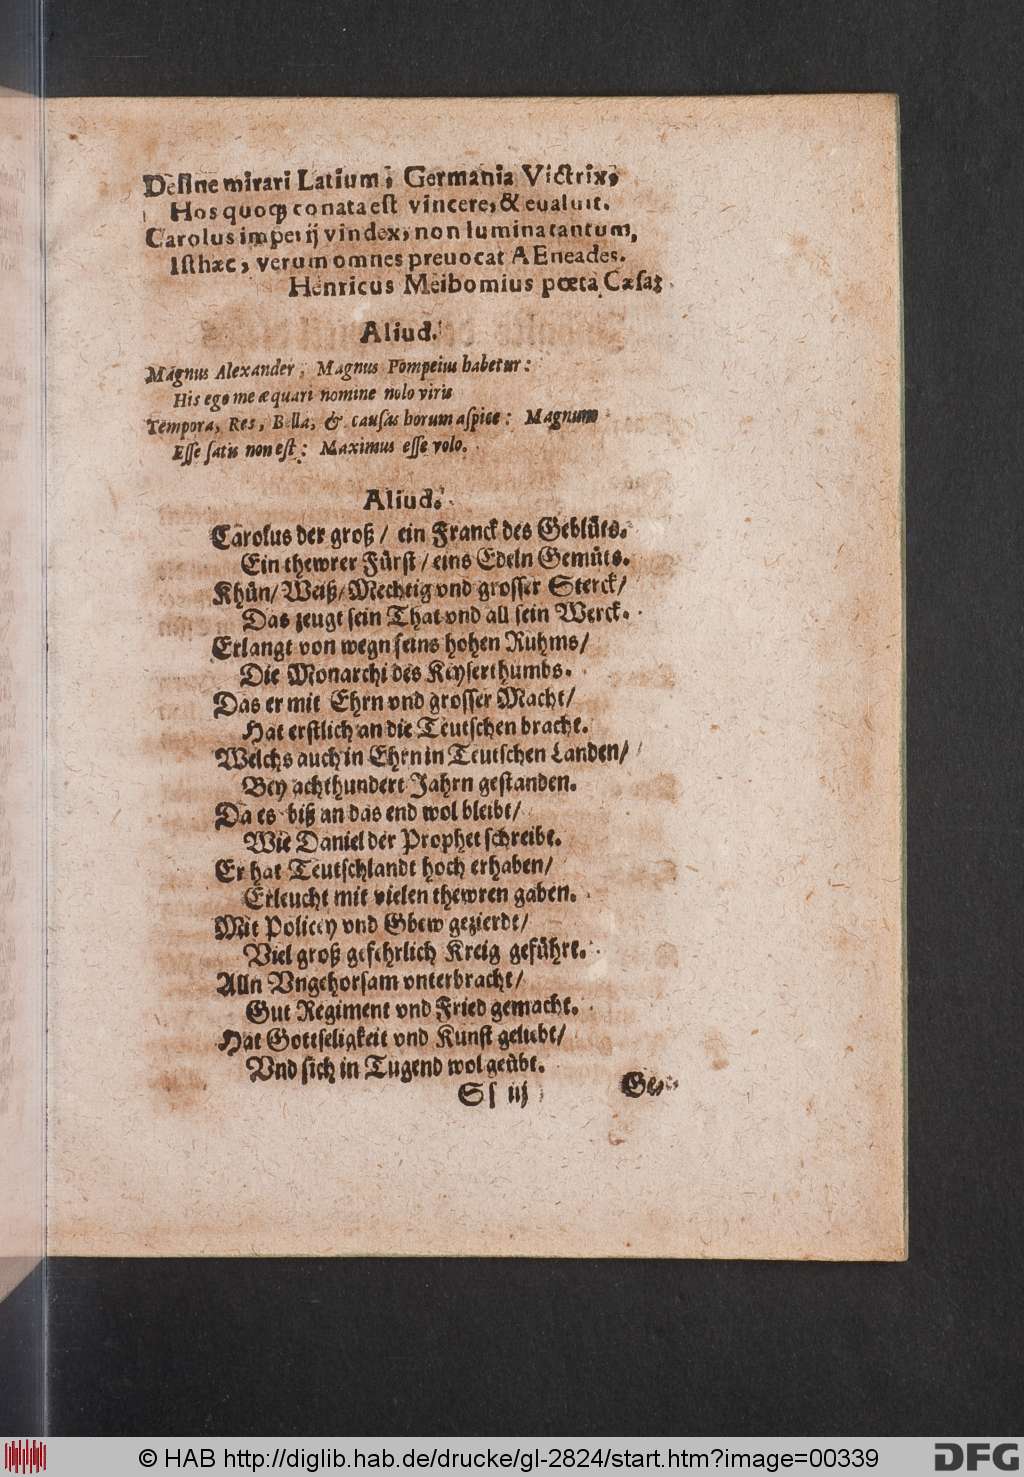 Desine mirari Latium, Germania Victrix,
Hos quoq; conata est vincere, & evaluit.
Carolus imperij vindex, non lumina tantum,
Isthæc, verum omnes prevocat AEneades.
Henricus Meibomius pœta Cæsar.
Aliud.
Magnus Alexander, Magnus Pompeius habetur:
His ego me æquari nomine nolo viris
Tempora, Res, Bella, & causas horum aspice: Magnum
Esse satis non est: Maximus esse volo.
Aliud.
Carolus der groß / ein Franck des Geblüts.
Ein thewrer Fürst / eins Edeln Gemüts.
Khün / Weiß / Mechtig vnd grosser Sterck /
Das zeugt sein That vnd all sein Werck.
Erlangt von wegn seins hohen Ruhms /
Die Monarchi des Keyserthumbs.
Das er mit Ehrn vnd grosser Macht /
Hat erstlich an die Teutschen bracht.
Welchs auch in Ehrn in Teutschen Landen /
Bey achthundert Jahrn gestanden.
Da es biß an das end wol bleibt /
Wie Daniel der Prophet schreibt.
Er hat Teutschlandt hoch erhaben /
Erleucht mit vielen thewren gaben.
Mit Policey vnd Gbew gezierdt /
Viel groß gefehrlich Kreig geführt.
Alln Vngehorsam vnterbracht /
Gut Regiment vnd Fried gemacht.
Hat Gottseligkeit vnd Kunst geliebt /
Vnd sich in Tugend wol geübt.
Sſ iij Ge-
© HAB http://diglib.hab.de/drucke/gl-2824/start.htm?image=00339
DFG